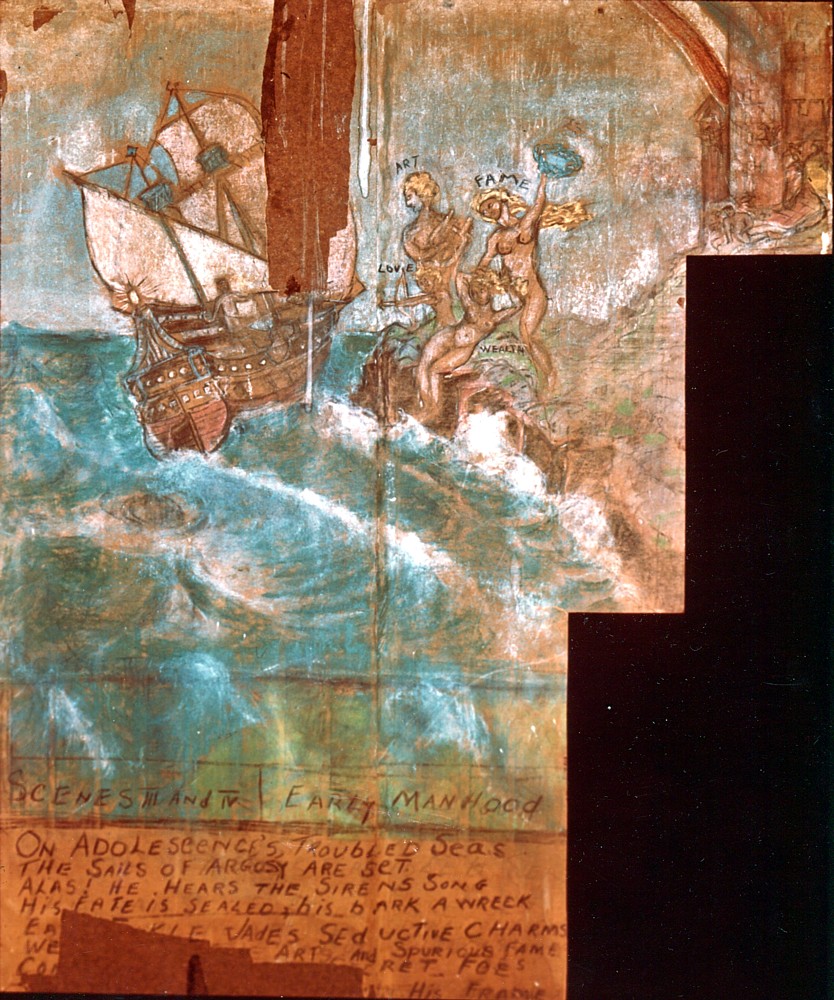 ART
FAME
LOVE
WEALTH
SCENES III AND IV | EARLY MANHOOD
ON ADOLESCENCE'S TROUBLED SEAS
THE SAILS OF ARGOSY ARE SET.
ALAS! HE HEARS THE SIRENS SONG
HIS FATE IS SEALED; his bARK A WRECK
JADES SEDUCTIVE CHARMS
ARTS And SPURIOUS FAME
FOES
HIS FRAME